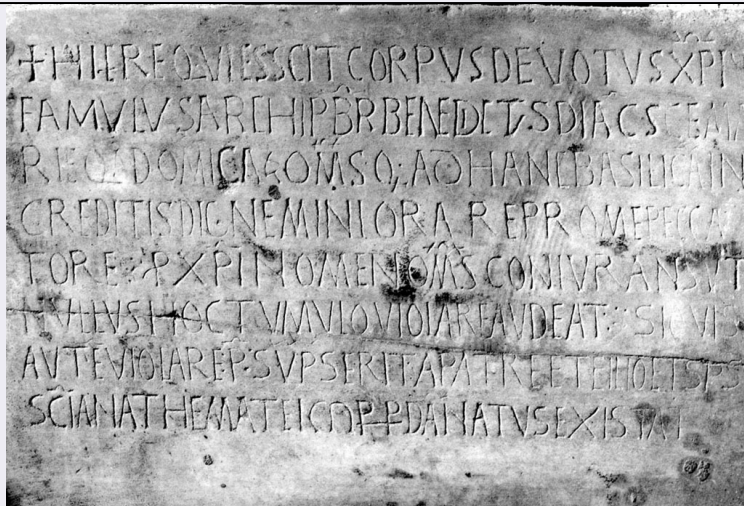 + HICREQVIESSCIT CORPVS DEVOTVS XPI
FAMVLVS ARCHIPBR BENEDICTVS DIAC SCE MA
RIE DOMICA OMS Q; AD HANC BASILICA IN
CREDITIS DIGNEMINI ORARE PRO ME PECCA
TORE PXPI NOMEN OMS CONIVRANS VT
NVLLVS HOC TVMVLO VIOLARE AVDEAT SI QVIS
AVTE VIOLARE PSVPSERIT A PATRE ET FILIO ET SPS
SCI ANATHEMATE DANATVS EXISTAT